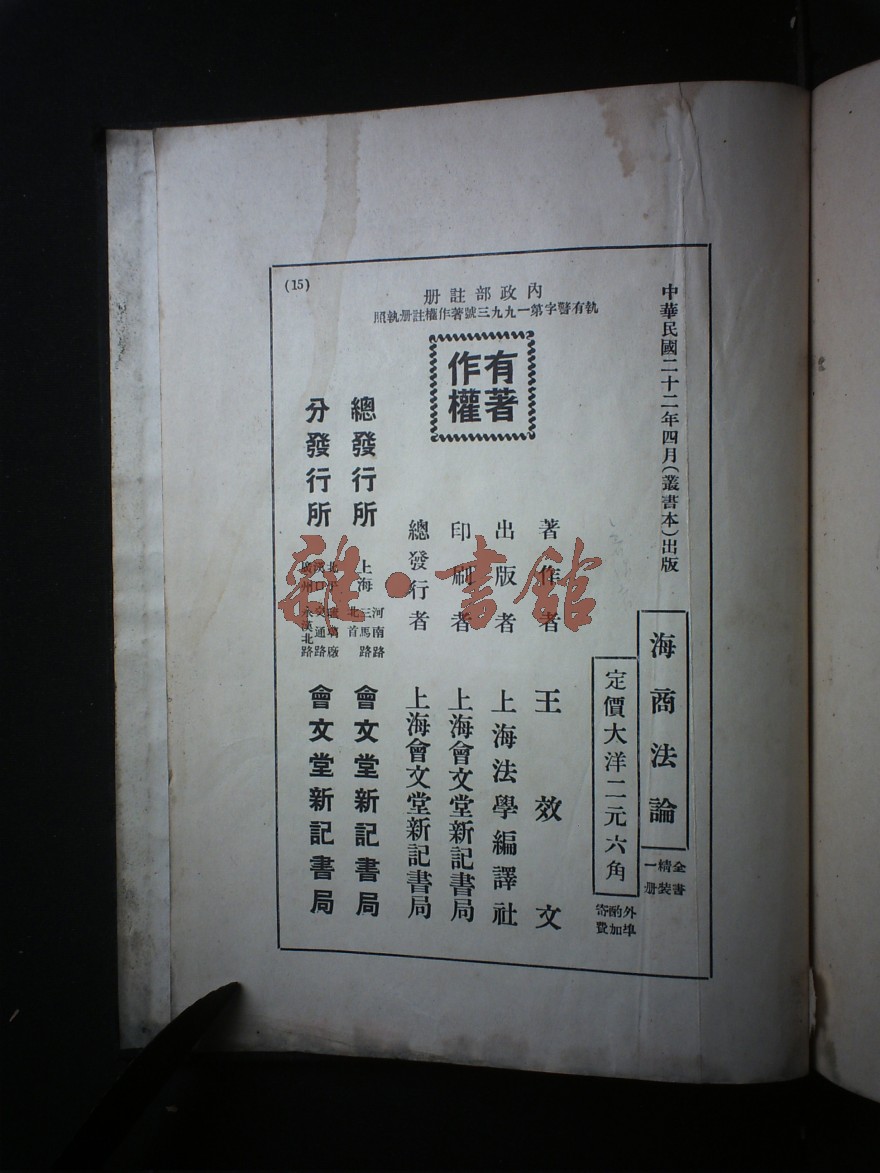 中華民國二十二年四月(叢書本)出版
海商法論
全書
精裝
一册
定價大洋二元六角
外埠
酌加
寄費
內政部註册
執有警字第一九九三號著作權註册執照
有著
作權
著作者 王效文
出版者 上海法學編譯社
印刷者 上海會文堂新記書局
總發行者 上海會文堂新記書局
總發行所 上海 河南路 三馬路 北首 會文堂新記書局
分發行所 北平 琉璃廠 漢口 交通路 廣州 永漢北路 會文堂新記書局
(15)
雜·書館